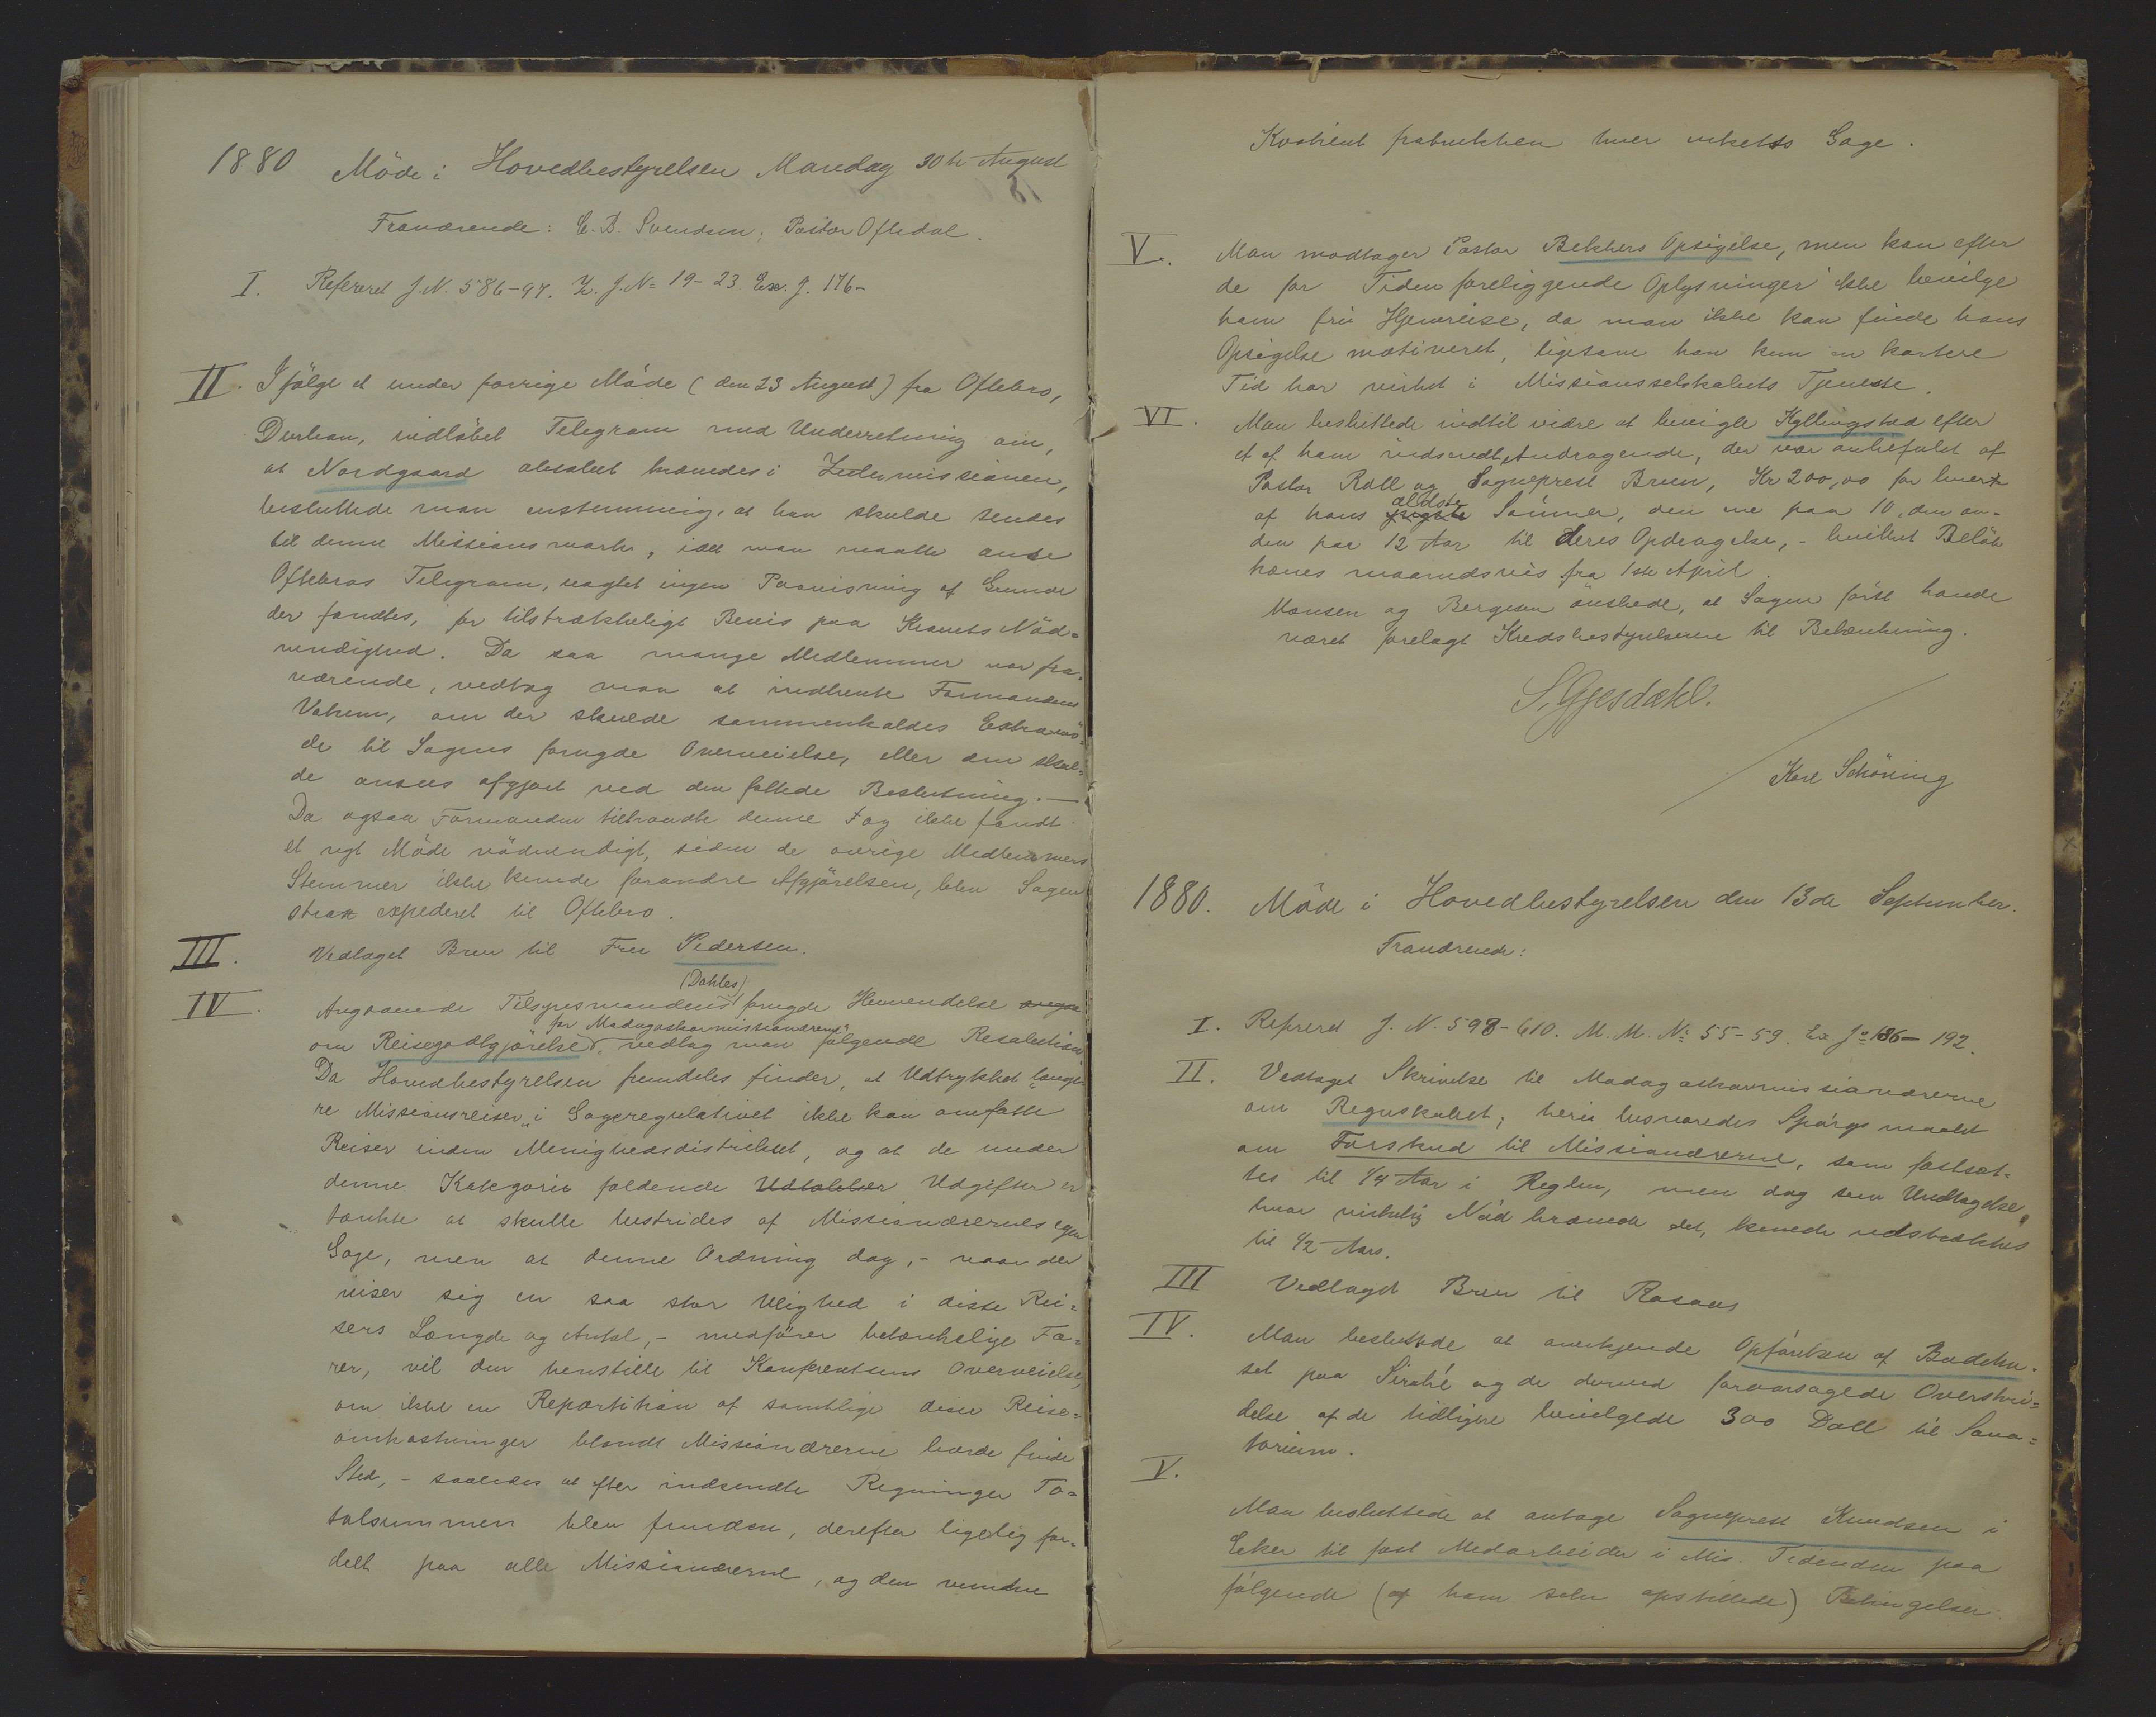 1880 Möde i Hovedbestyrelsen Mandag 30te August
Fraværende: E. B. Svendsen; Pastor Oftedal.
I. Refereret J.N. 586-97. Z. J.N= 19-23 Ex. J. 176-
II. Ifölge et under forrige Möde (den 23 August) fra Oftebro,
Durban, indlöbet Telegram med Underretning om,
at Nordgaard absolut trængtes i Zulumissionen,
besluttede man enstemmig, at han skulde sendes
til denne Missionsmark, idet man maatte anse
Oftebros Telegram, uagtet ingen Paavisning af Grunde
der fandtes, for tilstrækkeligt Bevis paa Kravets Nöd=
vendighed. Da saa mange Medlemmer var fra=
værende, vedtog man at indhente Formandens
Votum, om der skulde sammenkaldes Extramö=
de til Sagens fornyede Overveielse, eller den skul=
de ansees afgjort ved den fattede Beslutning. —
Da ogsaa Formanden tiltraadte denne og ikke fandt
et nyt Möde nödvendigt, siden de övrige Medlemmers
Stemmer ikke kunde forandre Afgjörelsen, blev Sagen
strax expederet til Oftebro.
III. Vedtaget Brev til Fru Pedersen.
(Dahles)
IV. Angaaende Tilsynsmandens fornyede Henvendelse
for Madagaskarmissionærerne
om Reisegodtgjörelse, vedtog man fölgende Resolution:
Da Hovedbestyrelsen fremdeles finder, at Udtrykket "længe-
re Missionsreiser" i Gageregulativet ikke kan omfatte
Reiser inden Menighedsdistriktet, og at de under
denne Kategori faldende Udtalelser Udgifter er
tænkte at skulle bestrides af Missionærernes egen
Gage, men at denne Ordning dog, - naar der
viser sig en saa stor Ulighed i disse Rei=
sers Længde og Antal, - medförer betænkelige Fa=
rer, vil den henstille til Konferentsens Overveielse,
om ikke en Repartition af samtlige disse Reise=
omkostninger blandt Missionærerne burde finde
Sted, - saaledes at efter indsendte Regninger To=
talsummen blev funden, derefter ligelig for=
delt paa alle Missionærerne, og den vundne
Kvotient fratrukken hver enkelts Gage.
V. Man modtager Pastor Bekkers Opsigelse, men kan efter
de for Tiden foreliggende Oplysninger ikke bevilge
ham fri Hjemreise, da man ikke kan finde hans
Opsigelse motiveret, ligesom han kun en kortere
Tid har virket i Missionsselskabets Tjeneste.
VI. Man besluttede indtil videre at bevilge Kyllingstad efter
et af ham indsendt Andragende, der var anbefalet af
Pastor Roll og Sogneprest Bruun, Kr 200,00 for hver
ældste
af hans yngste Sönner, den ene paa 10, den an-
den paa 12 Aar til deres Opdragelse, - hvilket Belöb
hæves maanedsvis fra 1ste April.
Monsen og Bergesen önskede, at Sagen först havde
været forelagt Kredsbestyrelserne til Betænkning.
S. Gjesdahl.
Karl Schöning
1880. Möde i Hovedbestyrelsen den 13de September.
Fraværende:
I. Refereret J. N. 598-610. M. M. No 55-59. Ex. Jo 186- 192.
II. Vedtaget Skrivelse til Madagaskarmissionærerne
om Regnskabet; heri besvaredes Spörgsmaalet
om Forskud til Missionærerne, som fastsat-
tes til 1/4 Aar i Reglen, men dog som Undtagelse,
hvor virkelig Nöd krævede det, kunde udstrækkes
til 1/2 Aars.
III Vedtaget Brev til Rosaas
IV. Man besluttede at anerkjende Opförelsen af Badehu-
set paa Sirabé og de derved foraarsagede Overskri=
delse af de tidligere bevilgede 300 Doll til Sana=
torium.
V.
Man besluttede at antage Sogneprest Knudsen i
Eker til fast Medarbeider i Mis. Tidenden paa
fölgende (af ham selv opstillede) Betingelser: